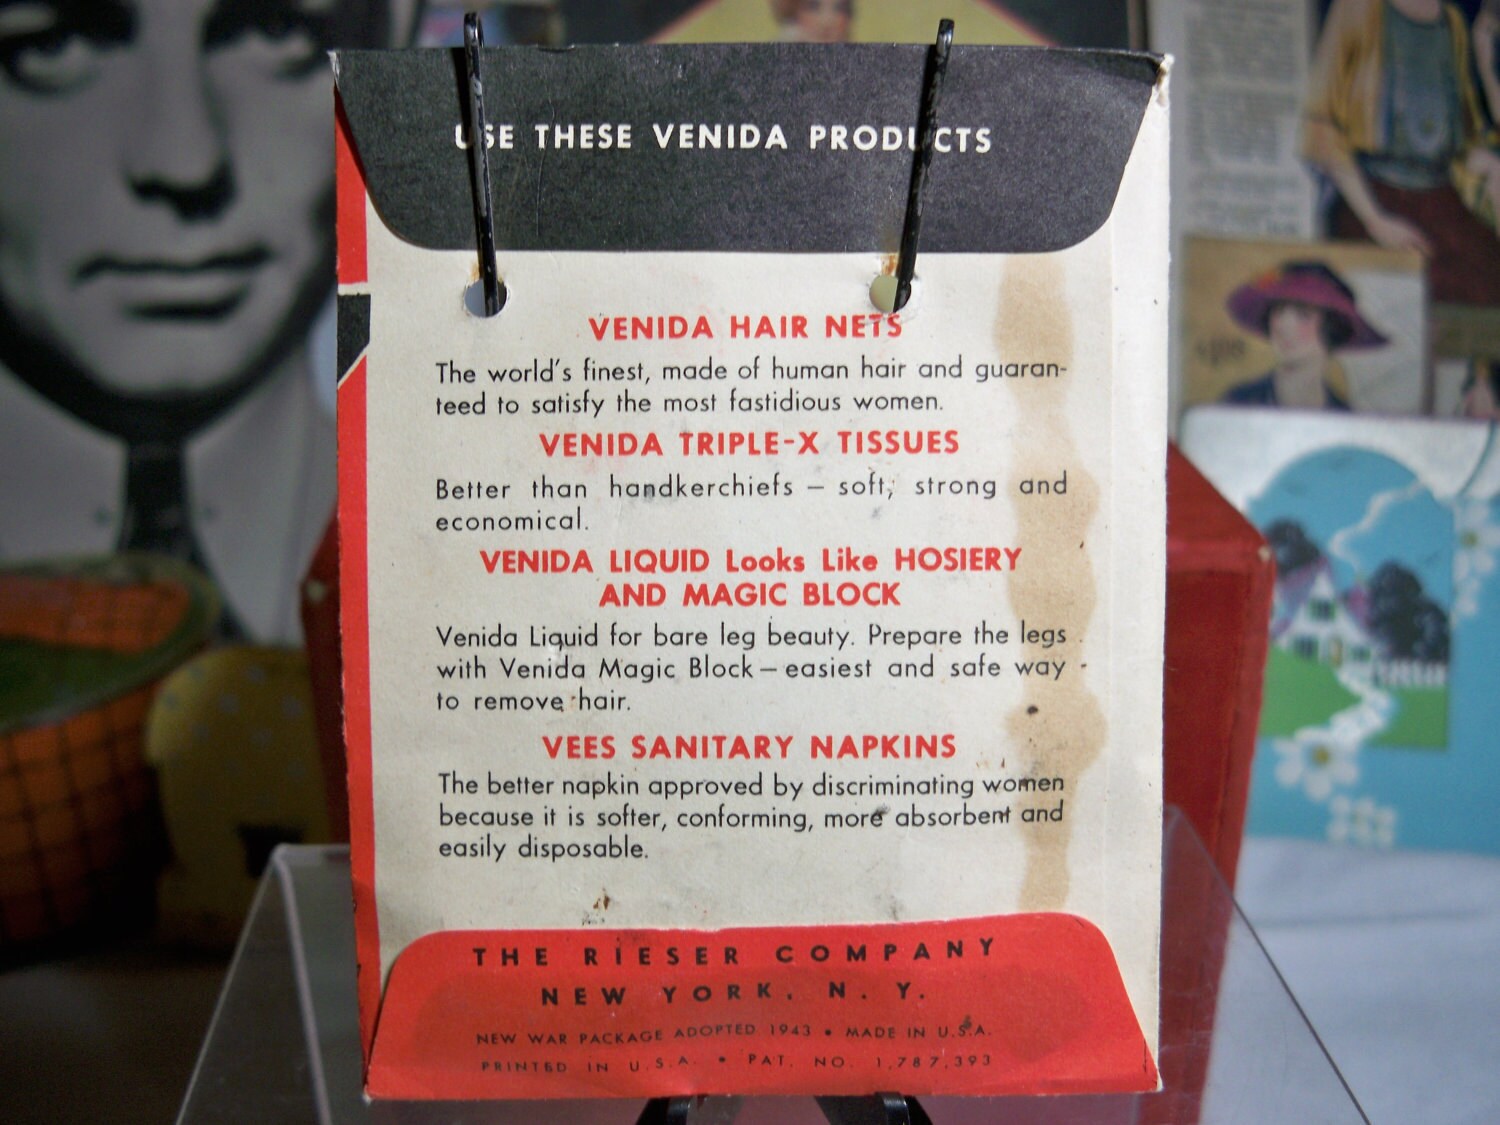 USE THESE VENIDA PRODUCTS
VENIDA HAIR NETS
The world's finest, made of human hair and guaran-
teed to satisfy the most fastidious women.
VENIDA TRIPLE-X TISSUES
Better than handkerchiefs — soft, strong and
economical.
VENIDA LIQUID Looks Like HOSIERY
AND MAGIC BLOCK
Venida Liquid for bare leg beauty. Prepare the legs
with Venida Magic Block — easiest and safe way
to remove hair.
VEES SANITARY NAPKINS
The better napkin approved by discriminating women
because it is softer, conforming, more absorbent and
easily disposable.
THE RIESER COMPANY
NEW YORK, N. Y.
NEW WAR PACKAGE ADOPTED 1943 • MADE IN U.S.A.
PRINTED IN U.S.A. • PAT. NO. 1,787,393